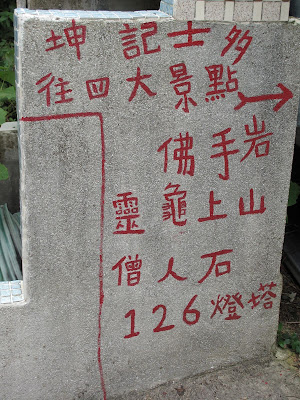 坤記士多
往四大景點
佛手岩
靈龜上山
僧人石
126燈塔